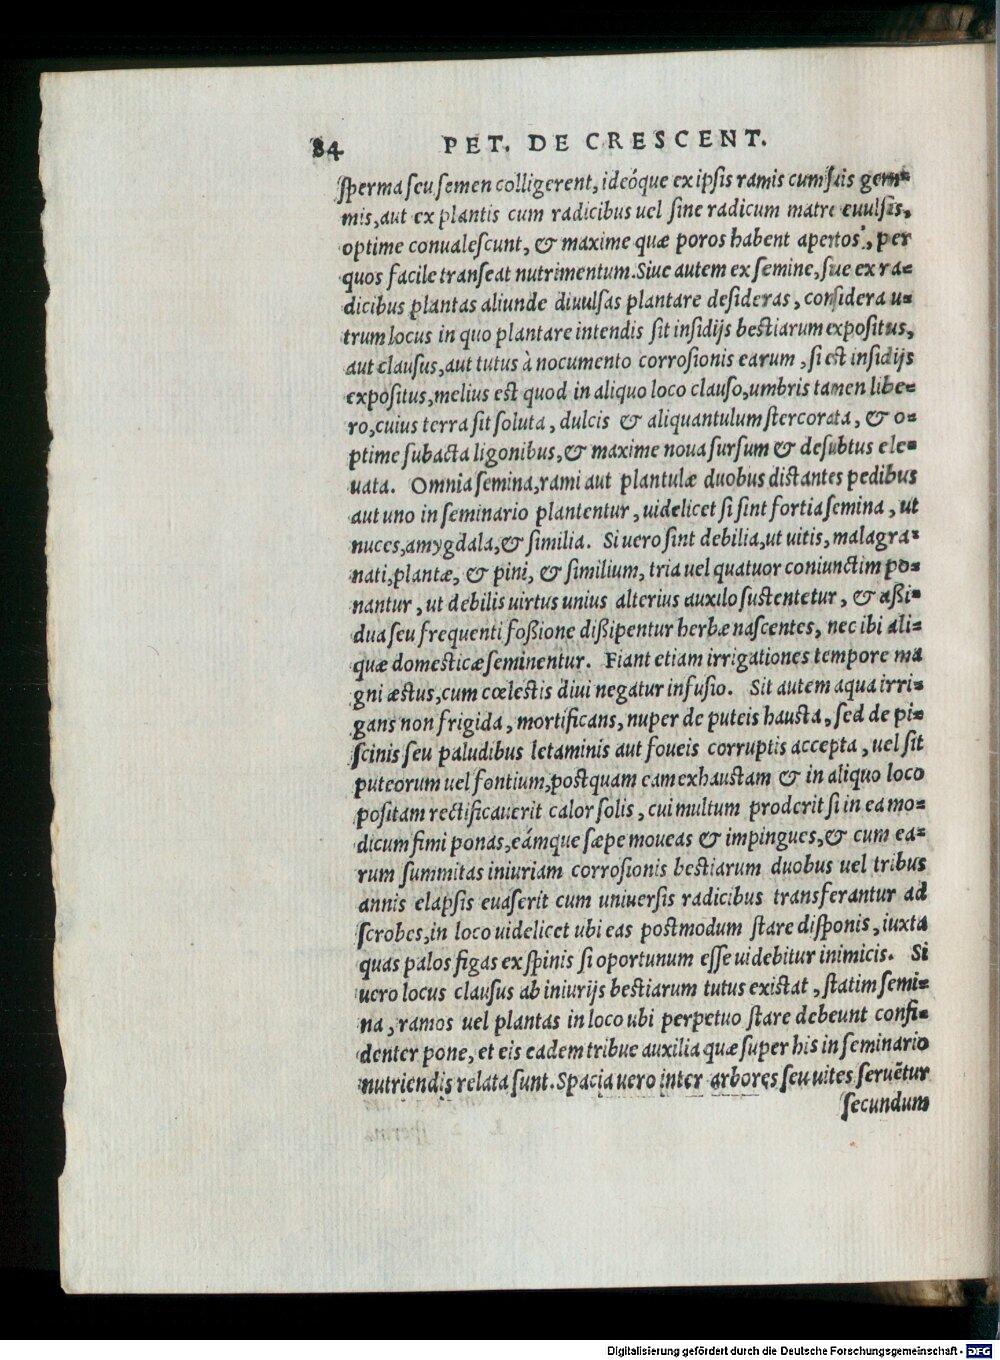 84 PET. DE CRESCENT.
ſperma ſeu ſemen colligerent, ideóque ex ipſis ramis cum ſuis gem=
mis, aut ex plantis cum radicibus uel ſine radicum matre euulſis,
optime conualeſcunt, & maxime quæ poros habent apertos, per
quos facile tranſeat nutrimentum. Siue autem ex ſemine, ſue ex ra=
dicibus plantas aliunde diuulſas plantare deſideras, conſidera u=
trum locus in quo plantare intendis ſit inſidijs beſtiarum expoſitus,
aut clauſus, aut tutus à nocumento corroſionis earum, ſi eſt inſidijs
expoſitus, melius eſt quod in aliquo loco clauſo, umbris tamen libe=
ro, cuius terra ſit ſoluta, dulcis & aliquantulum ſtercorata, & o=
ptime ſubacta ligonibus, & maxime noua ſurſum & deſubtus ele=
uata. Omnia ſemina, rami aut plantulæ duobus diſtantes pedibus
aut uno in ſeminario plantentur, uidelicet ſi ſint fortia ſemina, ut
nuces, amygdala, & ſimilia. Si uero ſint debilia, ut uitis, malagra=
nati, plantæ, & pini, & ſimilium, tria uel quatuor coniunctim po=
nantur, ut debilis uirtus unius alterius auxilo ſuſtentetur, & aßi=
dua ſeu frequenti foßione dißipentur herbæ naſcentes, nec ibi ali=
quæ domeſticæ ſeminentur. Fiant etiam irrigationes tempore ma
gni æſtus, cum cœleſtis diui negatur infuſio. Sit autem aqua irri=
gans non frigida, mortificans, nuper de puteis hauſta, ſed de pi=
ſcinis ſeu paludibus letaminis aut foueis corruptis accepta, uel ſit
puteorum uel fontium, poſtquam eam exhauſtam & in aliquo loco
poſitam rectificauerit calor ſolis, cui multum proderit ſi in ea mo=
dicum fimi ponas, eámque ſæpe moueas & impingues, & cum ea=
rum ſummitas iniuriam corroſionis beſtiarum duobus uel tribus
annis elapſis euaſerit cum uniuerſis radicibus transferantur ad
ſcrobes, in loco uidelicet ubi eas poſtmodum ſtare diſponis, iuxta
quas palos figas ex ſpinis ſi oportunum eſſe uidebitur inimicis. Si
uero locus clauſus ab iniurijs beſtiarum tutus exiſtat, ſtatim ſemi=
na, ramos uel plantas in loco ubi perpetuo ſtare debeunt confi=
denter pone, et eis eadem tribue auxilia quæ ſuper his in ſeminario
nutriendis relata ſunt. Spacia uero inter arbores ſeu uites ſeruētur
ſecundum
Digitalisierung gefördert durch die Deutsche Forschungsgemeinschaft - DFG